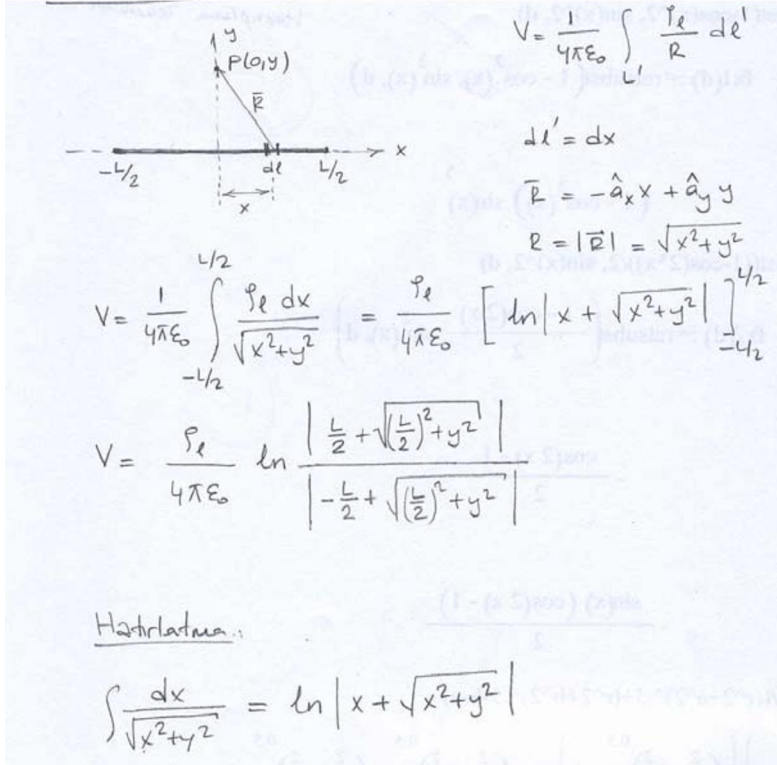 y
P(0,y)
R̄
x
-L/2
dl
L/2
x
V = 1/(4πε₀) ∫_L' ρ_ℓ/R dℓ'
dℓ' = dx
R̄ = -â_x x + â_y y
R = |R̄| = √(x²+y²)
V = 1/(4πε₀) ∫_{-L/2}^{L/2} ρ_ℓ dx/√(x²+y²) = ρ_ℓ/(4πε₀) [ln|x + √(x²+y²)|]_{-L/2}^{L/2}
V = ρ_ℓ/(4πε₀) ln |L/2 + √((L/2)²+y²)| / |-L/2 + √((L/2)²+y²)|
Hatırlatma:
∫ dx/√(x²+y²) = ln|x + √(x²+y²)|